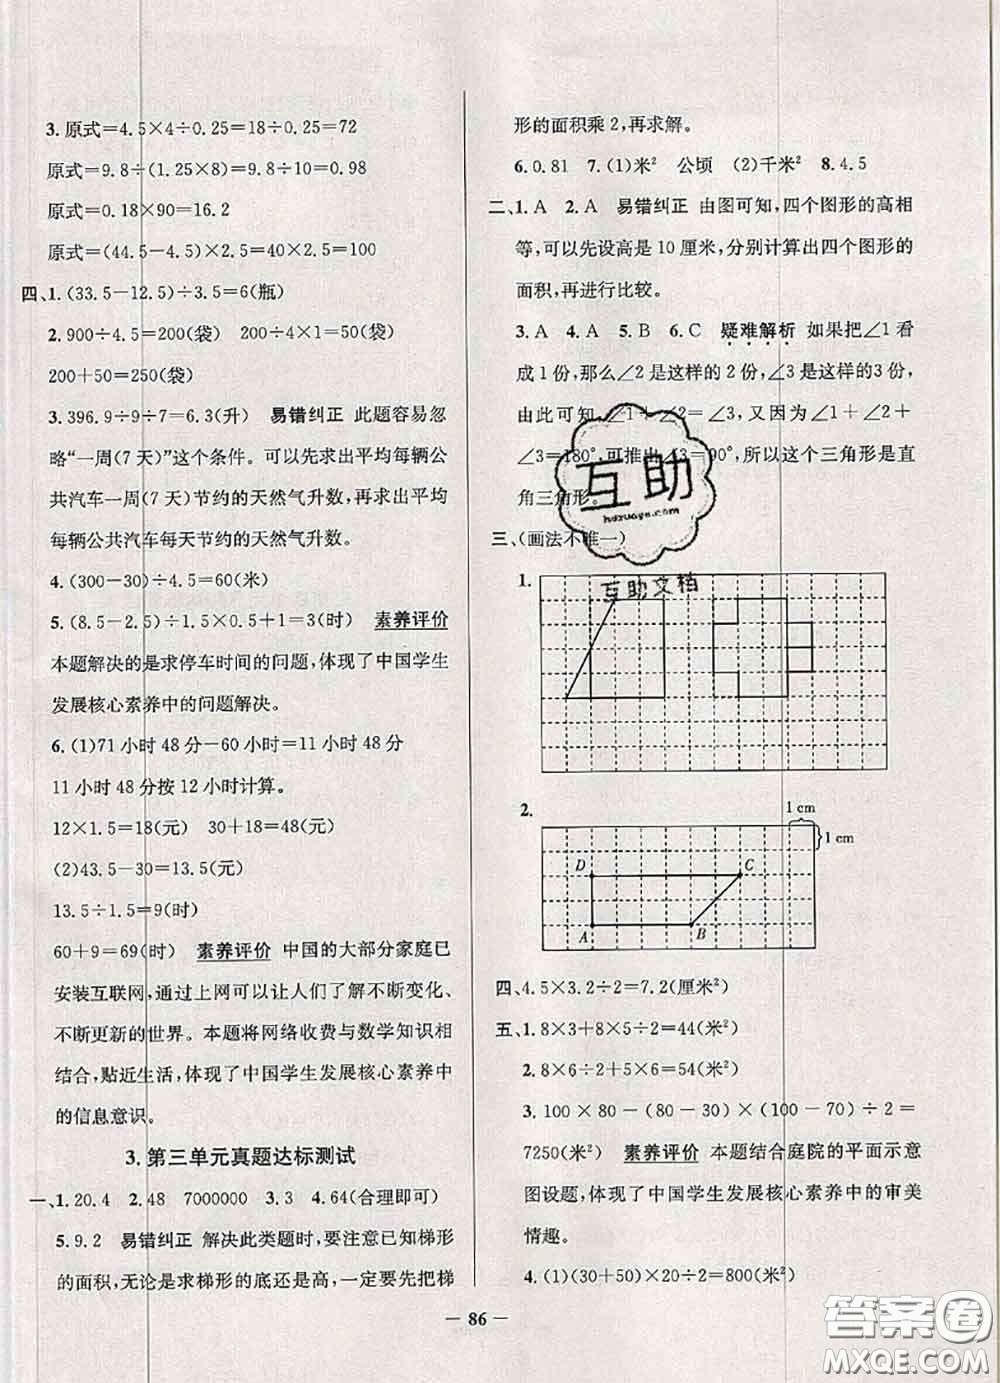 3.原式=4.5×4÷0.25=18÷0.25=72
原式=9.8÷(1.25×8)=9.8÷10=0.98
原式=0.18×90=16.2
原式=(44.5-4.5)×2.5=40×2.5=100
四、1.(33.5-12.5)÷3.5=6(瓶)
2.900÷4.5=200(袋) 200÷4×1=50(袋)
200+50=250(袋)
3.396.9÷9÷7=6.3(升) 易错纠正 此题容易忽
略“一周(7天)”这个条件。可以先求出平均每辆公
共汽车一周(7天)节约的天然气升数,再求出平均
每辆公共汽车每天节约的天然气升数。
4.(300-30)÷4.5=60(米)
5.(8.5-2.5)÷1.5×0.5+1=3(时) 素养评价
本题解决的是求停车时间的问题,体现了中国学生
发展核心素养中的问题解决。
6.(1)71小时48分-60小时=11小时48分
11小时48分按12小时计算。
12×1.5=18(元) 30+18=48(元)
(2)43.5-30=13.5(元)
13.5÷1.5=9(时)
60+9=69(时) 素养评价 中国的大部分家庭已
安装互联网,通过上网可以让人们了解不断变化、
不断更新的世界。本题将网络收费与数学知识相
结合,贴近生活,体现了中国学生发展核心素养中
的信息意识。
3.第三单元真题达标测试
一、1.20.4 2.48 7000000 3.3 4.64(合理即可)
5.9.2 易错纠正 解决此类题时,要注意已知梯形
的面积,无论是求梯形的底还是高,一定要先把梯
形的面积乘2,再求解。
6.0.81 7.(1)米² 公顷 (2)千米² 8.4.5
二、1.A 2.A 易错纠正 由图可知,四个图形的高相
等,可以先设高是10厘米,分别计算出四个图形的
面积,再进行比较。
3.A 4.A 5.B 6.C 疑难解析 如果把∠1看
成1份,那么∠2是这样的2份,∠3是这样的3份,
由此可知,∠1+∠2=∠3,又因为∠1+∠2+
∠3=180°,可推出∠3=90°,所以这个三角形是直
角三角形。
互助
hdzuoye.com
三、(画法不唯一)
互助文档
1.
2.
1 cm
1 cm
D C
A B
四、4.5×3.2÷2=7.2(厘米²)
五、1.8×3+8×5÷2=44(米²)
2.8×6÷2+5×6=54(米²)
3.100×80-(80-30)×(100-70)÷2=
7250(米²) 素养评价 本题结合庭院的平面示意
图设题,体现了中国学生发展核心素养中的审美
情趣。
4.(1)(30+50)×20÷2=800(米²)
— 86 —
答案圈
MXQE.COM